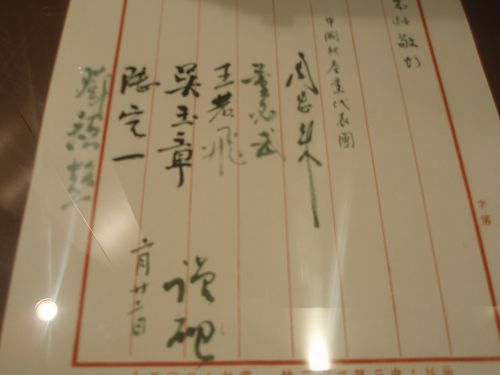 敬
中國共產黨代表團
周恩來
董必武
王若飛
吳玉章
陸定一
鄧穎超
謹
月廿二日